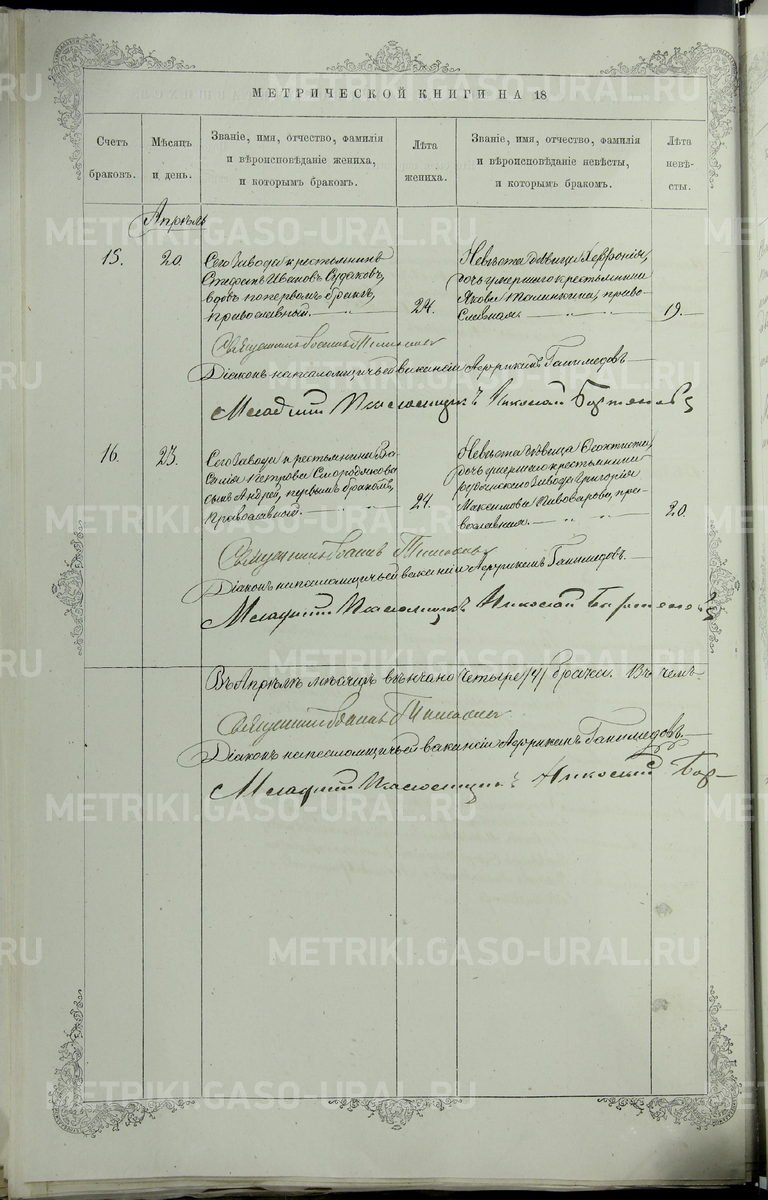 МЕТРИЧЕСКОЙ КНИГИ НА 18
Счетъ браковъ.
Мѣсяцъ и день.
Званіе, имя, отчество, фамилія и вѣроисповѣданіе жениха, и которымъ бракомъ.
Лѣта жениха.
Званіе, имя, отчество, фамилія и вѣроисповѣданіе невѣсты, и которымъ бракомъ.
Лѣта невѣсты.
Апрѣль
15.
20.
Сего завода крестьянинъ
Стефанъ Ивановъ Судаковъ,
вдовъ по первомъ бракѣ,
православный.
24.
Невѣста дѣвица
дочь умершаго крестьянина
Якова Калинкина, право-
славная
19.
Священникъ Іоаннъ
Діаконъ на псаломщичьей вакансіи Африканъ Ганимедовъ
Младшій Псаломщикъ Николай
16.
23.
Сего завода крестьянина Ва-
силія Петрова Смородякова
сынъ Андрей, первымъ бракомъ,
Православный.
24.
Невѣста дѣвица Феоктиста,
дочь умершаго крестьянина
завода Григорія
Максимова Пивоварова, пра-
вославная.
20.
Священникъ Іоаннъ
Діаконъ на псаломщичьей вакансіи Африканъ Ганимедовъ.
Младшій Псаломщикъ Николай
Въ Апрѣлѣ мѣсяцѣ вѣнчано четыре /4/ брака. Въ чемъ
Священникъ Іоаннъ
Діаконъ на псаломщичьей вакансіи Африканъ Ганимедовъ
Младшій Псаломщикъ Николай
METRIKI.GASO-URAL.RU